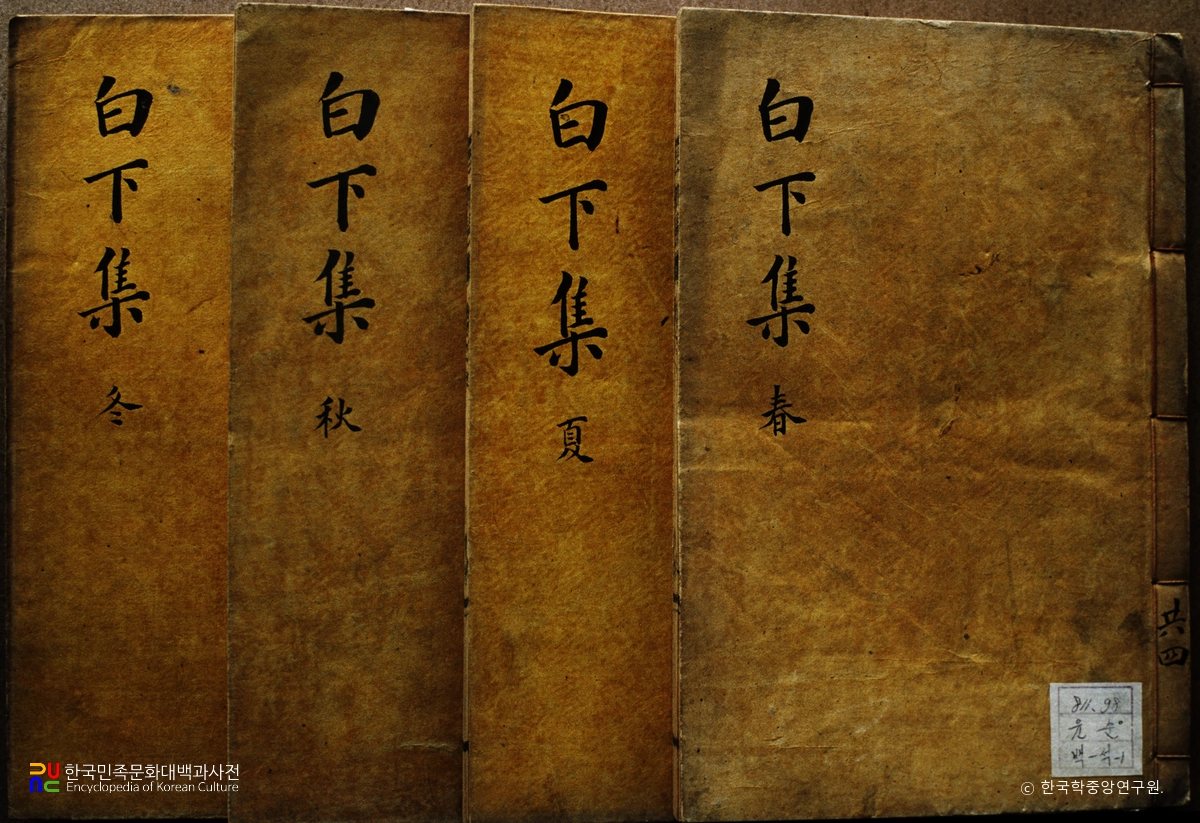 白下集
春
共四
白下集
夏
白下集
秋
白下集
冬
811.98
윤 순
한국민족문화대백과사전
Encyclopedia of Korean Culture
ⓒ 한국학중앙연구원.